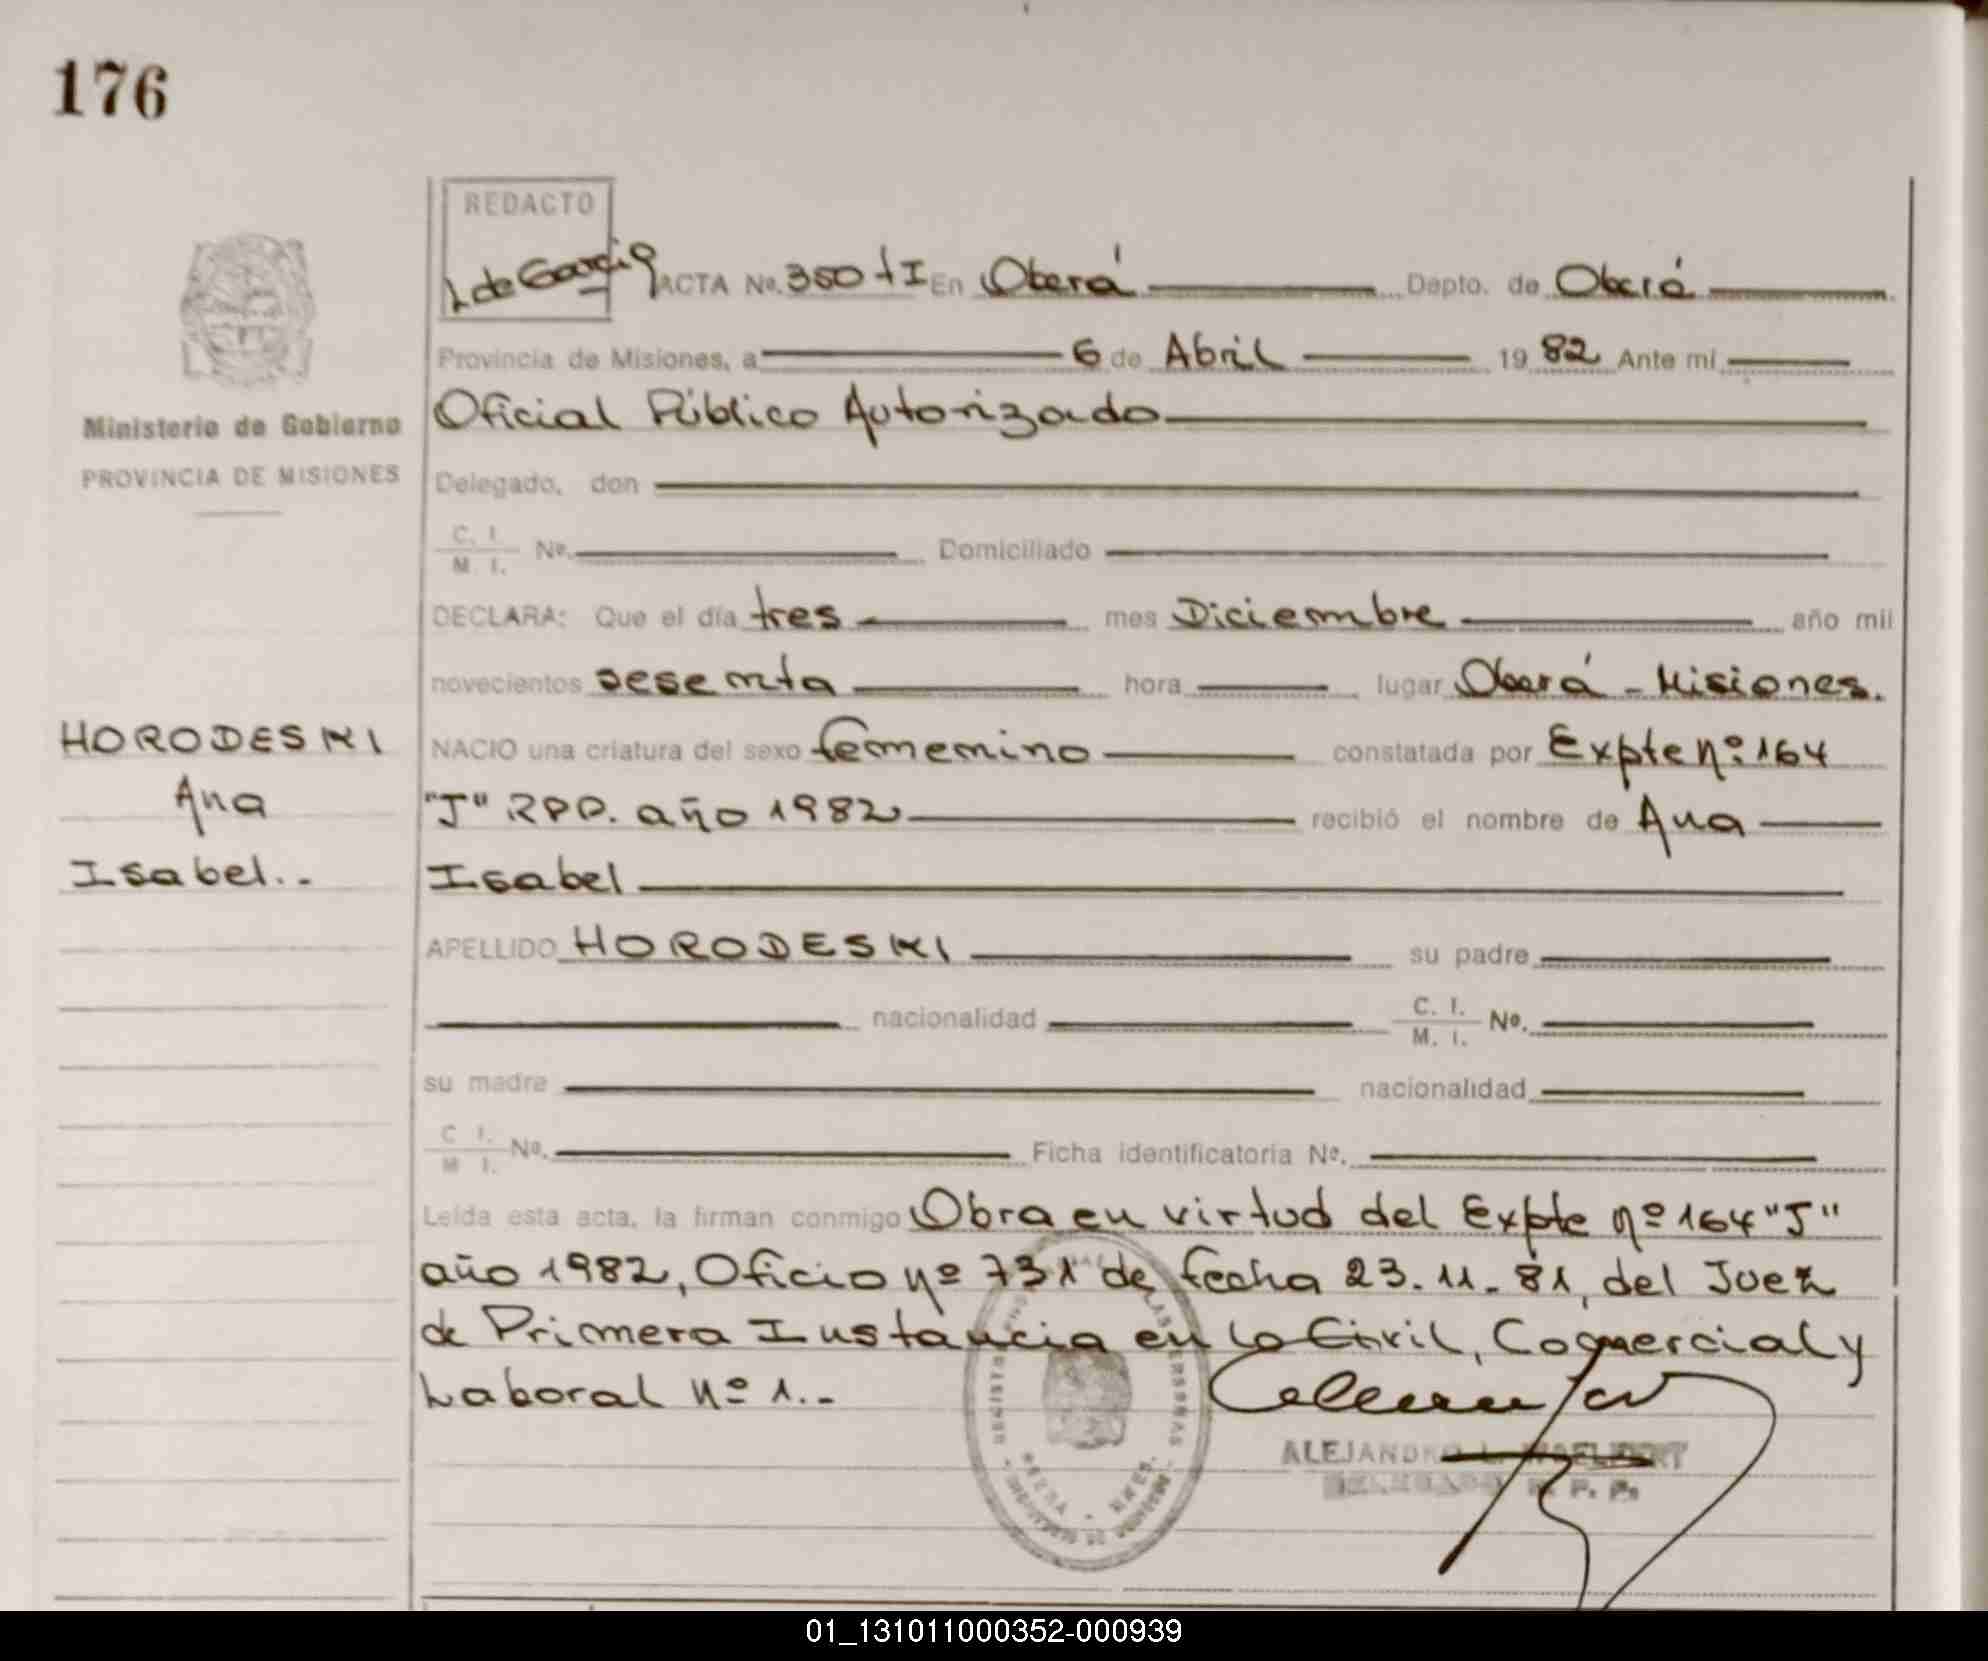 176
REDACTO
L de Garcia ACTA No. 350 tI En Oberá Depto. de Oberá
Provincia de Misiones, a 6 de Abril 1982 Ante mí
Ministerio de Gobierno
Oficial Público Autorizado
PROVINCIA DE MISIONES
Delegado, don
C. I. M. I. No. Domiciliado
DECLARA: Que el día tres mes Diciembre año mil
novecientos sesenta hora lugar Oberá - Misiones.
HORODESKI
NACIO una criatura del sexo femenino constatada por Expte nº: 164
Ana
"J" RPP. año 1982 recibió el nombre de Ana
Isabel.-
Isabel
APELLIDO HORODESKI su padre
nacionalidad C. I. M. I. No.
su madre nacionalidad
C I. M I. No. Ficha identificatoria No.
Leída esta acta, la firman conmigo Obra en virtud del Expte nº 164 "J"
año 1982, Oficio nº 731 de fecha 23.11.81, del Juez
de Primera Instancia en lo Civil, Comercial y
Laboral nº 1.-
ALEJANDRO L.
R. P. P.
01_131011000352-000939